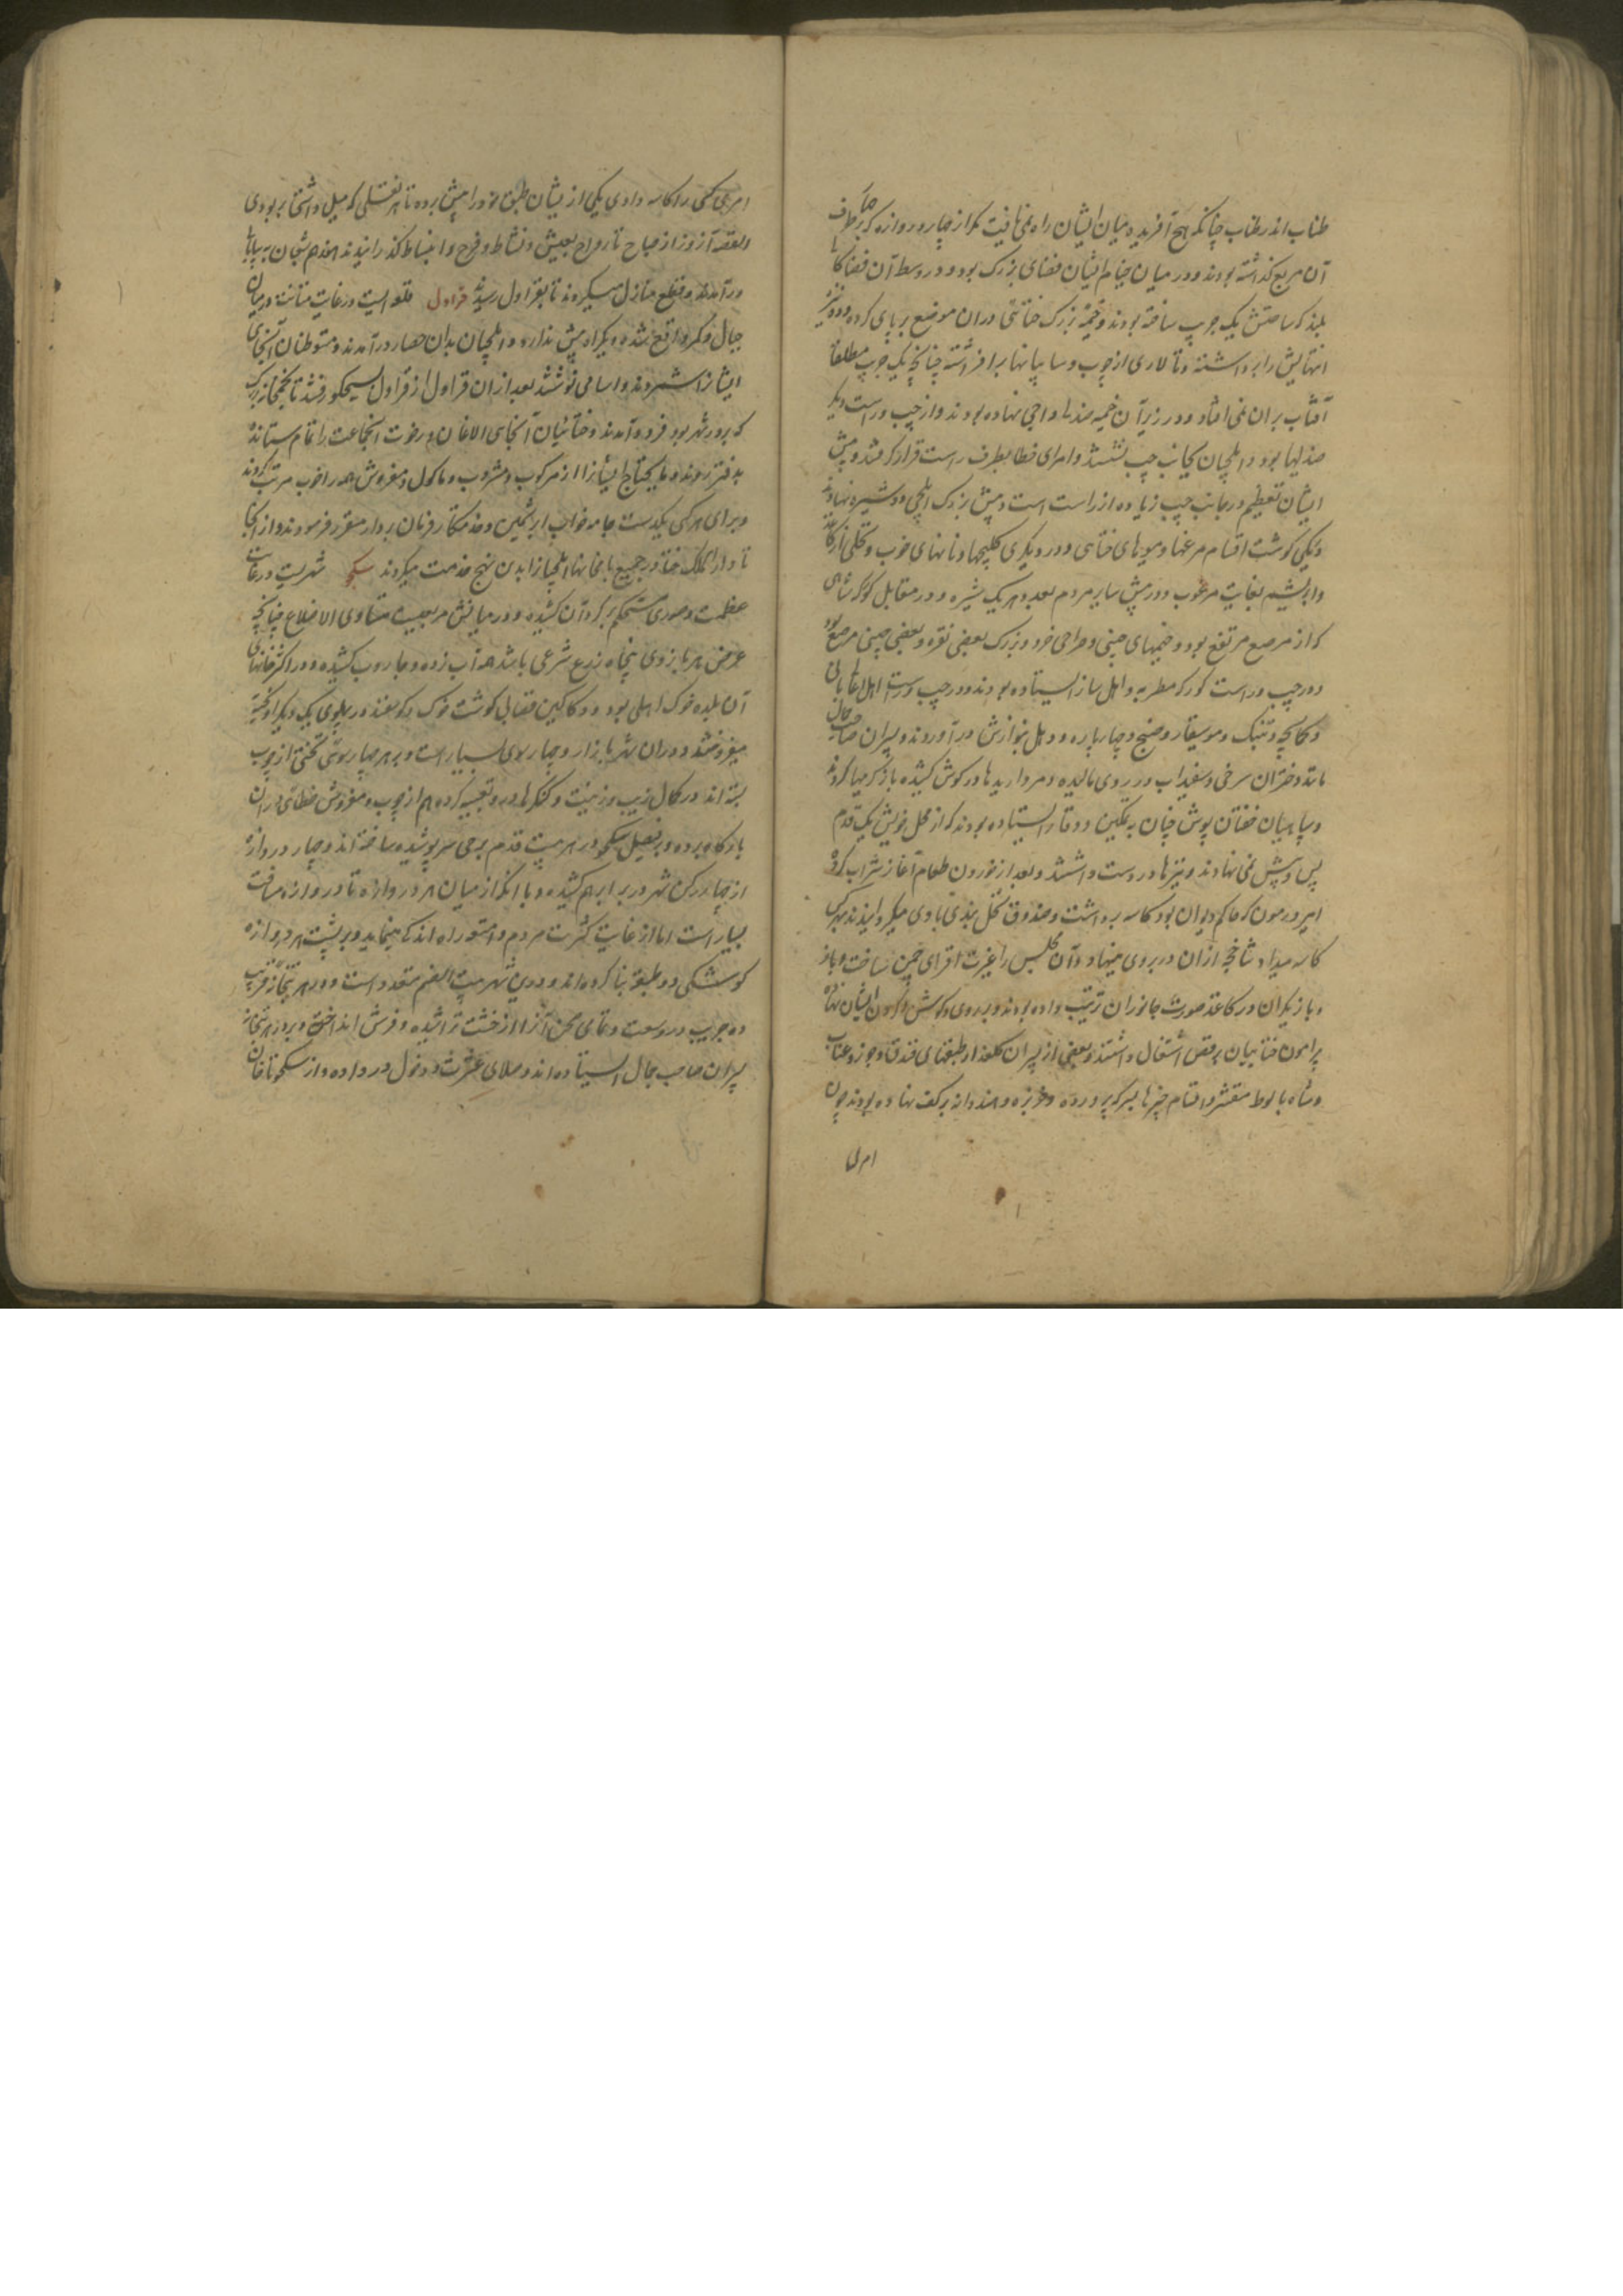 طناب اندر طناب چنانکه هیچ آفریده میان ایشان راه نمی یافت مکر از چهار دروازه که بر چهار طرف
آن مربع کذاشته بودند و در میان خیام ایشان فضای بزرک بود و در وسط آن فضا کاهی
بلند که ساحتش یک جریب ساخته بودند و خیمهٔ بزرک ختائی دران موضع بر پای کرده و دو تیر
انتهایش را برداشته و تالاری از چوب و سایبانها برافراشته چنانچه یک جریب مطلقا
آفتاب بران نمی افتاد و در زیر آن خیمه صندلها و اجی نهاده بودند و از چپ و راست دیکر
صندلیها بود و ایلچیان بجانب چپ نشستند و امرای خطا بطرف راست قرار کرفتند و پیش
ایشان تعظیم در جانب چپ زیاده از راست است و پیش بزرک ایلچی دو شیره نهادند
در یکی کوشت اقسام مرغها و میوهای ختائی و در دیکری کلیچها و نانهای خوب و نخلی از کاغذ
و ابریشم بغایت مرغوب و در پیش سایر مردم بعد و هر یک شیره و در مقابل کورکه شاهی
که از مرصع مرتفع بود و خمهای چینی و صراحی خرد و بزرک بعضی نقره و بعضی چینی مرصع بود
و در چپ و راست کورکه مطربه و اهل ساز ایستاده بودند و در چپ و راست اهل
و کمانچه و تنبک و موسیقار و صنج و چهارپاره و دهل بنوازش در آوردند و پسران صاحب جمال
مانند دختران سرخی و سفیداب در روی مالیده و مرواریدها در کوش کشیده بازیکریها کردند
و سپاهیان خفتان پوش چنان به تمکین و وقار ایستاده بودند که از محل خویش یک قدم
پس و پیش نمی نهادند و نیزها در دست داشتند و بعد از خوردن طعام آغاز شراب کرده
امیر در مون که حاکم دیوان بود کاسه برداشت و صندوق نخل بندی با وی میکردانیدند بهر کس
کاسه میداد شاخچه ازان در بروی مینهاد و آن مجلس را غیرت افزای چمن ساخت و باز
و بازیکران در کاغذ صورت جانوران ترتیب داده بودند و بر روی و کوش و کردن ایشان نهاده
پرامون ختائیان برقص اشتغال داشتند و بعضی از پسران کلعذار طبقهای فندق و جوز و عناب
و شاه بلوط مقشر و اقسام چیزها بسرکه پرورده و خربزه و هندوانه بر کف نهاده بودند چون
امیری
امیری کسی را کاسه دادی یکی از ایشان طبق خود را پیش برده تا بهر نقلی که میل داشتی بر بودی
القصه آنروز از صباح تا رواح بعیش و نشاط و فرح و انبساط کذرانیدند هفدهم شعبان به بیابان
در آمدند و قطع منازل میکردند تا بقراول رسیدند قراول قلعه ایست در غایت متانت در میان
جبال و کمر واقع شده و یکراه بیش ندارد و ایلچیان بدان حصار در آمدند و متوطنان آنجای
ایشانرا شمردند و اسامی نوشتند بعد ازان قراول از قراول بسیکجو رفتند تا یخمخانه بزرک
که بر در شهر بود فرود آمدند و ختائیان آنجای الاغان و رخوت آنجماعت را تمام ستانده
بدفتر بردند و مایحتاج ایشانرا از مرکوب و مشروب و ماکول و مفروش همه را خوب مرتب کردند
و برای هر کس یکدست جامه خواب ابریشمین و خدمتکار فرمان بردار مقرر فرمودند و از آنجا
تا دار الملک ختا در جمیع یامخانها ایلچیانرا بدین نهج خدمت میکردند سیکجو شهریست در غایت
عظمت و سوری مستحکم بر کرد آن کشیده و در میانش مربعیست متساوی الاضلاع چنانچه
عرض هر بازوی پنجاه ذرع شرعی باشد همه آب زده و جاروب کشیده و در اکثر خانهای
آن بلده خوک اهلی بود و دکاکین قصابی کوشت خوک و کوسفند در پهلوی یک دیکر آویخته
میفروختند و دران شهر بازار و چهارسوی بسیار است و بر هر چهارسوئی تختی از چوب
بسته اند در کمال زیب و زینت و کنکرها درو تعبیه کرده هم از چوب و مفروش خطائی دران
بارکاه برده و بر فصیل سیکجو در هر بیست قدم برجی سر پوشیده ساخته اند و چهار دروازه
از چهار رکن شهر در برابر هم کشیده و با آنکه از میان هر دروازه تا دروازه مسافت
بسیار است اما از غایت کثرت مردم و استور راه اندک مینماید و بر پشت هر دروازه
کوشکی دو طبقه بنا کرده اند و درین شهر بیت الصنم متعدد است و در هر بتخانه قریب
ده جریب در وسعت و تمامی صحن آنرا از خشت تراشیده و فرش انداخته و بر در هر بتخانه
پسران صاحب جمال ایستاده اند و صلای عشرت و دخول در داده و از سیکجو تا خان